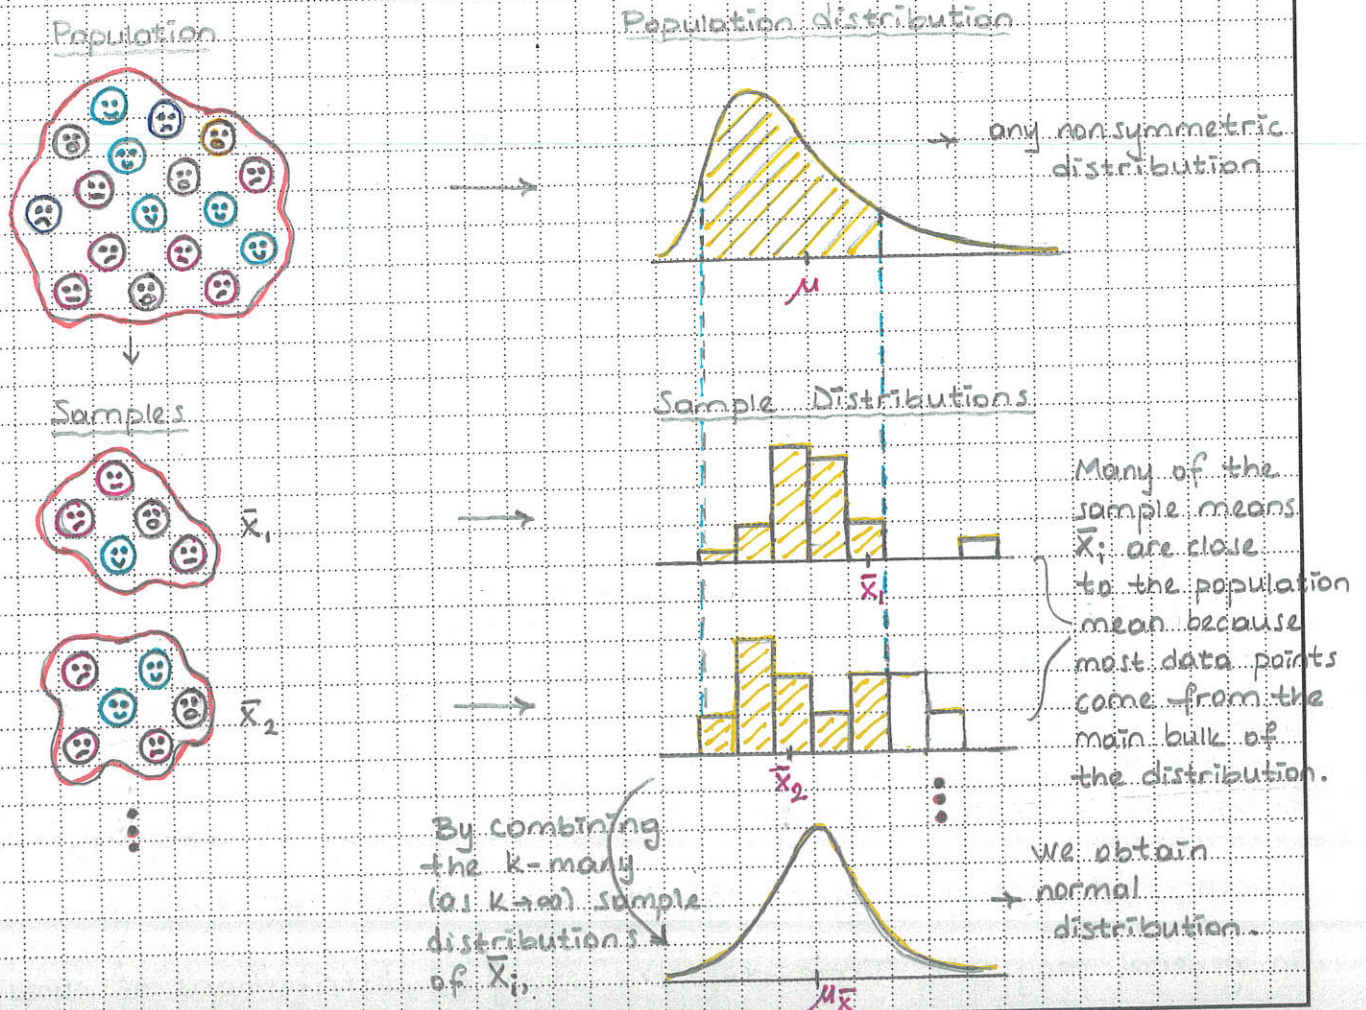 Population
Population distribution
→ any nonsymmetric
distribution
μ
Samples
Sample Distributions
x̄₁
x̄₁
Many of the
sample means
x̄ᵢ are close
to the population
mean because
most data points
come from the
main bulk of
the distribution.
x̄₂
x̄₂
By combining
the k-many
(as k→∞) sample
distributions
of x̄ᵢ,
→ we obtain
normal
distribution.
μx̄